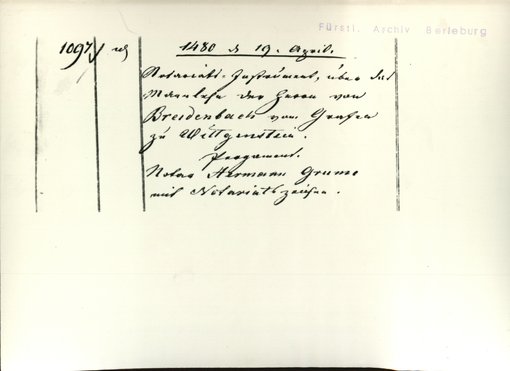 Fürstl. Archiv Berleburg
1097
1480 d 19. April.
Notariats-Instrument, über das
Mannlehn der Herrn von
Breidenbach vom Grafen
zu Wittgenstein.
Pergament.
Notar Hermann Grume
mit Notariatszeichen.